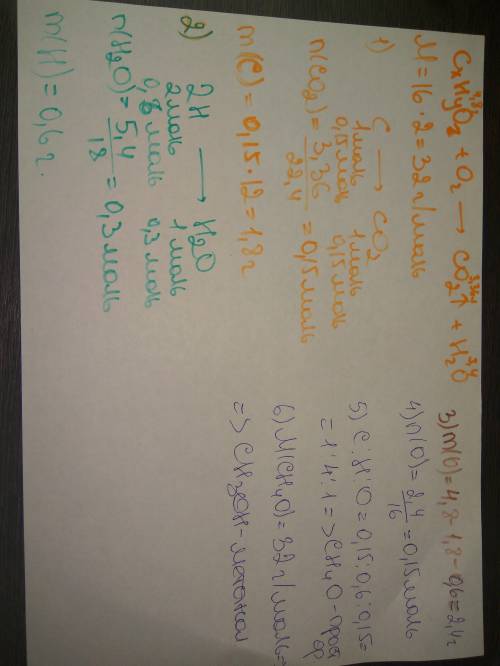 4,8
3,36л
5,4
CxHyOz + O2 → CO2↑ + H2O
M = 16 · 2 = 32 г/моль
1) C → CO2
1моль 1моль
0,15моль 0,15моль
n(CO2) = 3,36 / 22,4 = 0,15моль
m(C) = 0,15 · 12 = 1,8г
2) 2H → H2O
2моль 1моль
0,6моль 0,3моль
n(H2O) = 5,4 / 18 = 0,3моль
m(H) = 0,6г.
3) m(O) = 4,8 - 1,8 - 0,6 = 2,4г
4) n(O) = 2,4 / 16 = 0,15моль
5) C:H:O = 0,15:0,6:0,15 =
= 1:4:1 => CH4O -
6) M(CH4O) = 32г/моль =>
=> CH3OH - метанол